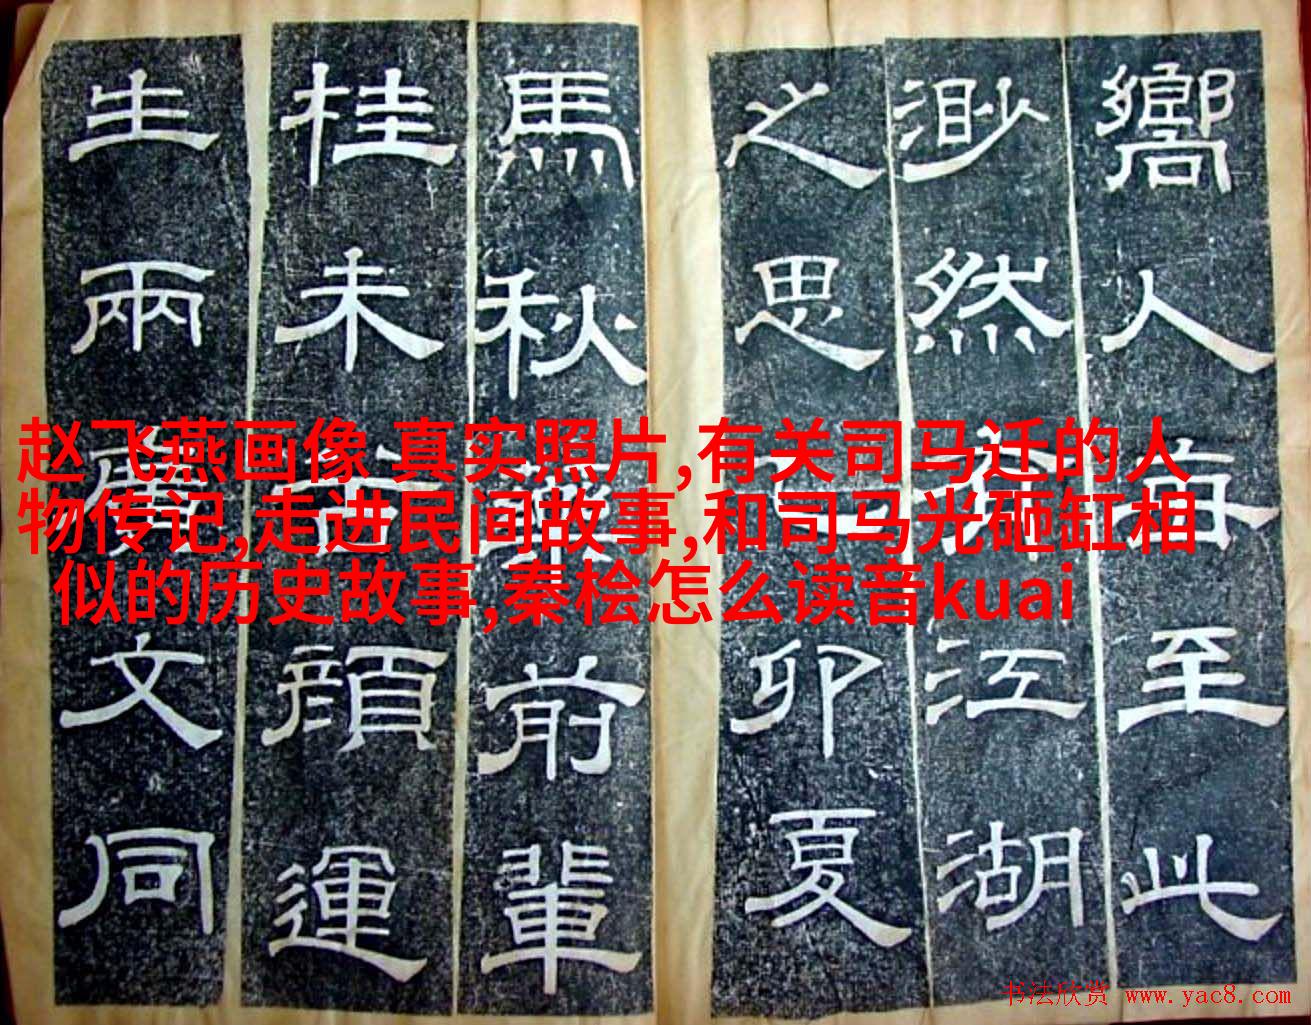 嚮人每至此
渺然有江湖
之思卯夏
馬秋前輩
桂未谷顏運
生兩廣文同
赵飞燕画像 真实照片,有关司马迁的人
物传记,走进民间故事,和司马光砸缸相
似的历史故事,秦桧怎么读音kuai
书法欣赏 www.yac8.com